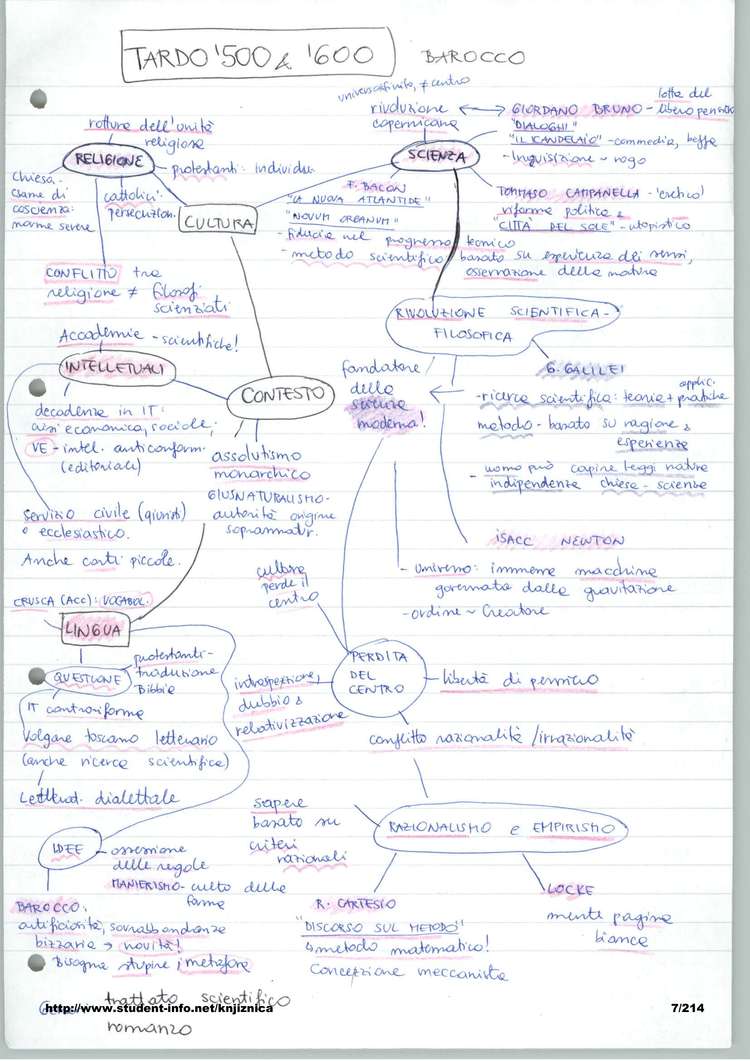 TARDO '500 & '600
BAROCCO
universo infinito, ≠ centro
rivoluzione
copernicana
lotta del
GIORDANO BRUNO - libero pensiero
"DIALOGHI"
"IL CANDELAIO" - commedia, beffa
- Inquisizione ~ rogo
rottura dell'unità
religiosa
RELIGIONE
protestanti: individui
SCIENZA
chiesa:
esame di
coscienza:
norme severe
cattolici:
persecuzioni
CULTURA
F. BACON
"LA NUOVA ATLANTIDE"
"NOVUM ORGANUM"
- fiducia nel progresso tecnico
- metodo scientifico basato su esperienza dei sensi,
osservazione della natura
TOMMASO CAMPANELLA - 'eretico'
riforma politica &
"CITTÀ DEL SOLE" - utopistico
CONFLITTO tra
religione ≠ filosofi
scienziati
RIVOLUZIONE SCIENTIFICA -
FILOSOFICA
Accademie - scientifiche!
INTELLETUALI
CONTESTO
fondatore
della
scienza
moderna!
G. GALILEI
applic.
- ricerca scientifica: teoria + pratiche
metodo - basato su ragione &
esperienze
- uomo può capire leggi natura
- indipendenza chiesa - scienza
decadenza in IT:
crisi economica, sociale;
VE - intel. anticonform.
(editoriali)
assolutismo
monarchico
GIUSNATURALISMO -
autorità origine
soprannatur.
Servizio civile (giuristi)
o ecclesiastico.
Anche corti piccole.
ISACC NEWTON
- universo: immensa macchina
governata dalla gravitazione
- ordine ~ Creatore
cultura
perde il
centro
CRUSCA (ACC): VOCABOL.
LINGUA
PERDITA
DEL
CENTRO
introspezione,
dubbio &
relativizzazione
libertà di pensiero
QUESTIONE
protestanti -
traduzione
Bibbia
IT controriforma
Volgare toscano letterario
(anche ricerca scientifica)
Letterat. dialettale
conflitto razionalità / irrazionalità
sapere
basato su
criteri
razionali
RAZIONALISMO e EMPIRISMO
IDEE
ossessione
delle regole
MANIERISMO - culto della
forma
R. CARTESIO
"DISCORSO SUL METODO"
↳ metodo matematico!
Concezione meccanista
LOCKE
mente pagina
bianca
BAROCCO:
artificiosità, sovrabbondanza
bizzaria → novità!
Bisogna stupire; metafora
trattato scientifico
romanzo
http://www.student-info.net/knjiznica
7/214